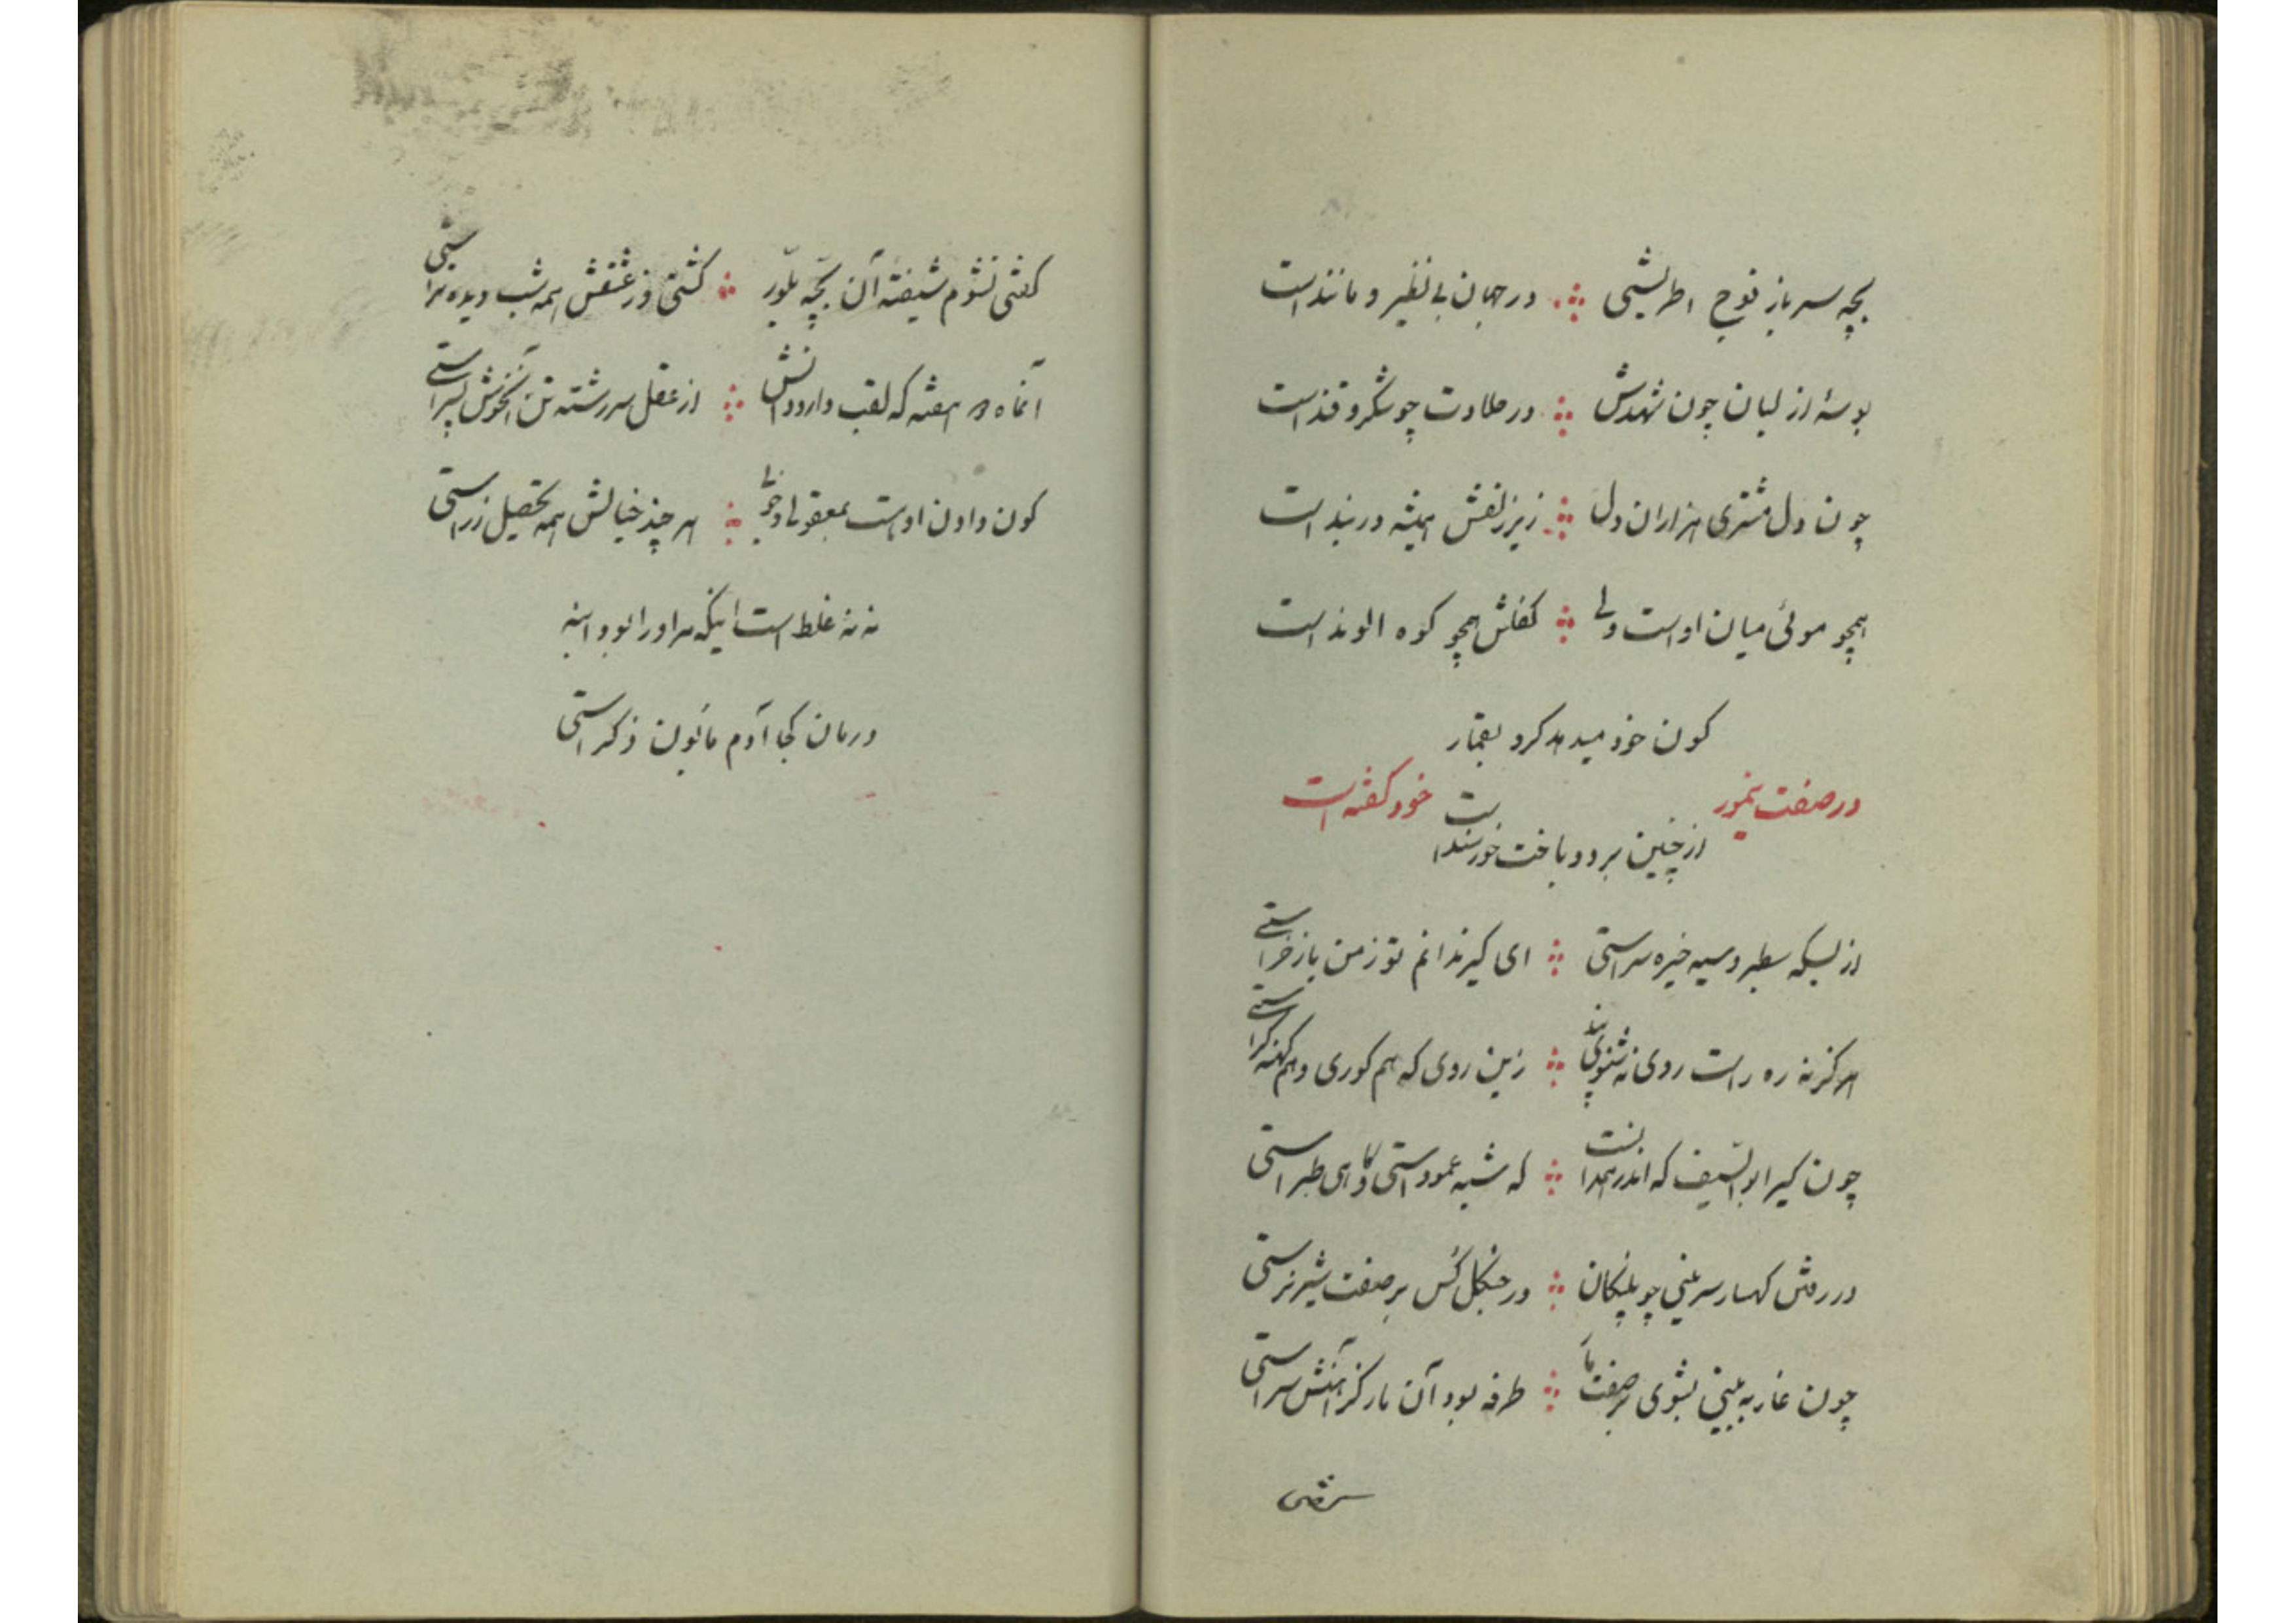 بچه سرباز فوج اطریشی در جهان بی نظیر و مانند است
بوسهٔ از لبان چون شهدش در حلاوت چو شکر و قند است
چون دل مشتری هزاران دل زیر زلفش همیشه در بند است
همچو موئی میان اوست ولی کفلش همچو کوه الوند است
کون خود میدهد کرد بقمار
در صفت خود گفته است
از چنین برد و باخت خورسند است
از بسکه سطبر و سیه خیره سراستی ای کیر ندانم تو ز من یا ز خراستی
هرگز نه ره راست روی نه شنوی پند زین روی که هم کوری و هم گنده کراستی
چون کیر ابوالسیف که اندر همدانست که شبه عموداستی و گاهی طبراستی
در رفتن کهسار سرینی چو پلنگان در جنگل کس بر صفت شیر نراستی
چون غار به بینی بشوی بر صفت مار طرفه بود آن مار کز آتش سراستی
گفتی نشوم شیفته آن بچه بلور گشتی و ز عشقش همه شب دیده
آنماه دو هفته که لقب دارد دانش از عقل سررشته تن آنخوش پسراستی
کون دادن اوست بمعقولی و خوبی هر چند خیالش همه تحصیل زراستی
نه نه غلط است اینکه مر او را بود ابنه
درمان کجا آدم مابون ذکراستی